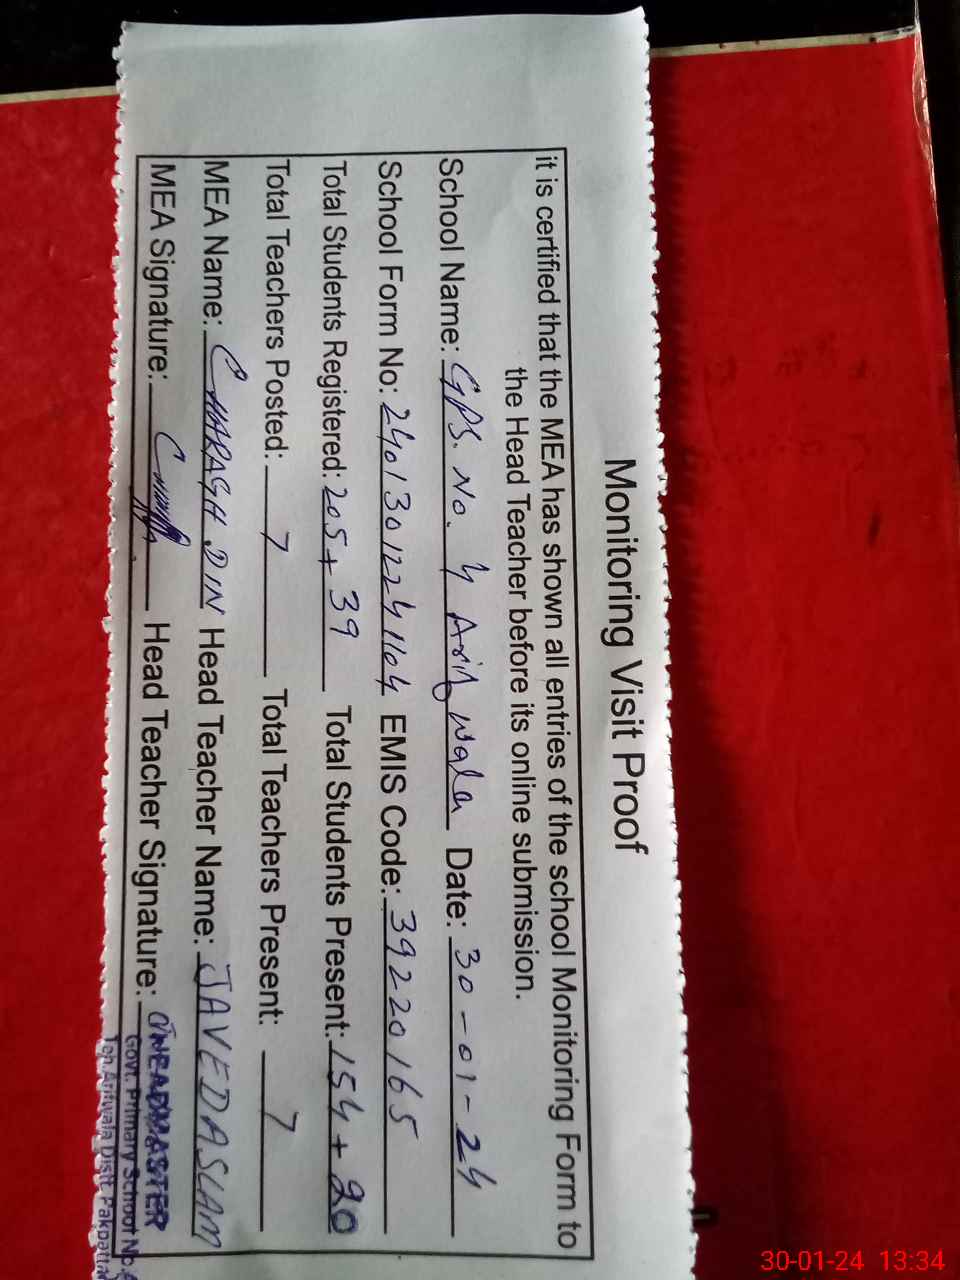 Monitoring Visit Proof
it is certified that the MEA has shown all entries of the school Monitoring Form to
the Head Teacher before its online submission.
School Name: GPS. No. 4 Arifwala Date: 30-01-24
School Form No: 24013012241104 EMIS Code: 39220165
Total Students Registered: 205+39 Total Students Present: 154+20
Total Teachers Posted: 7 Total Teachers Present: 7
MEA Name: CHARAGH DIN Head Teacher Name: JAVED ASLAM
MEA Signature: Head Teacher Signature:
HEADMASTER
Govt. Primary School No.4
Teh. Arifwala Distt. Pakpattan
30-01-24 13:34